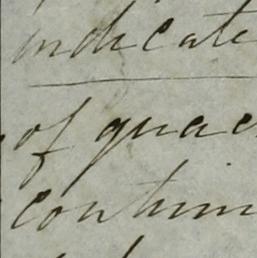 indicate
of quac
contin